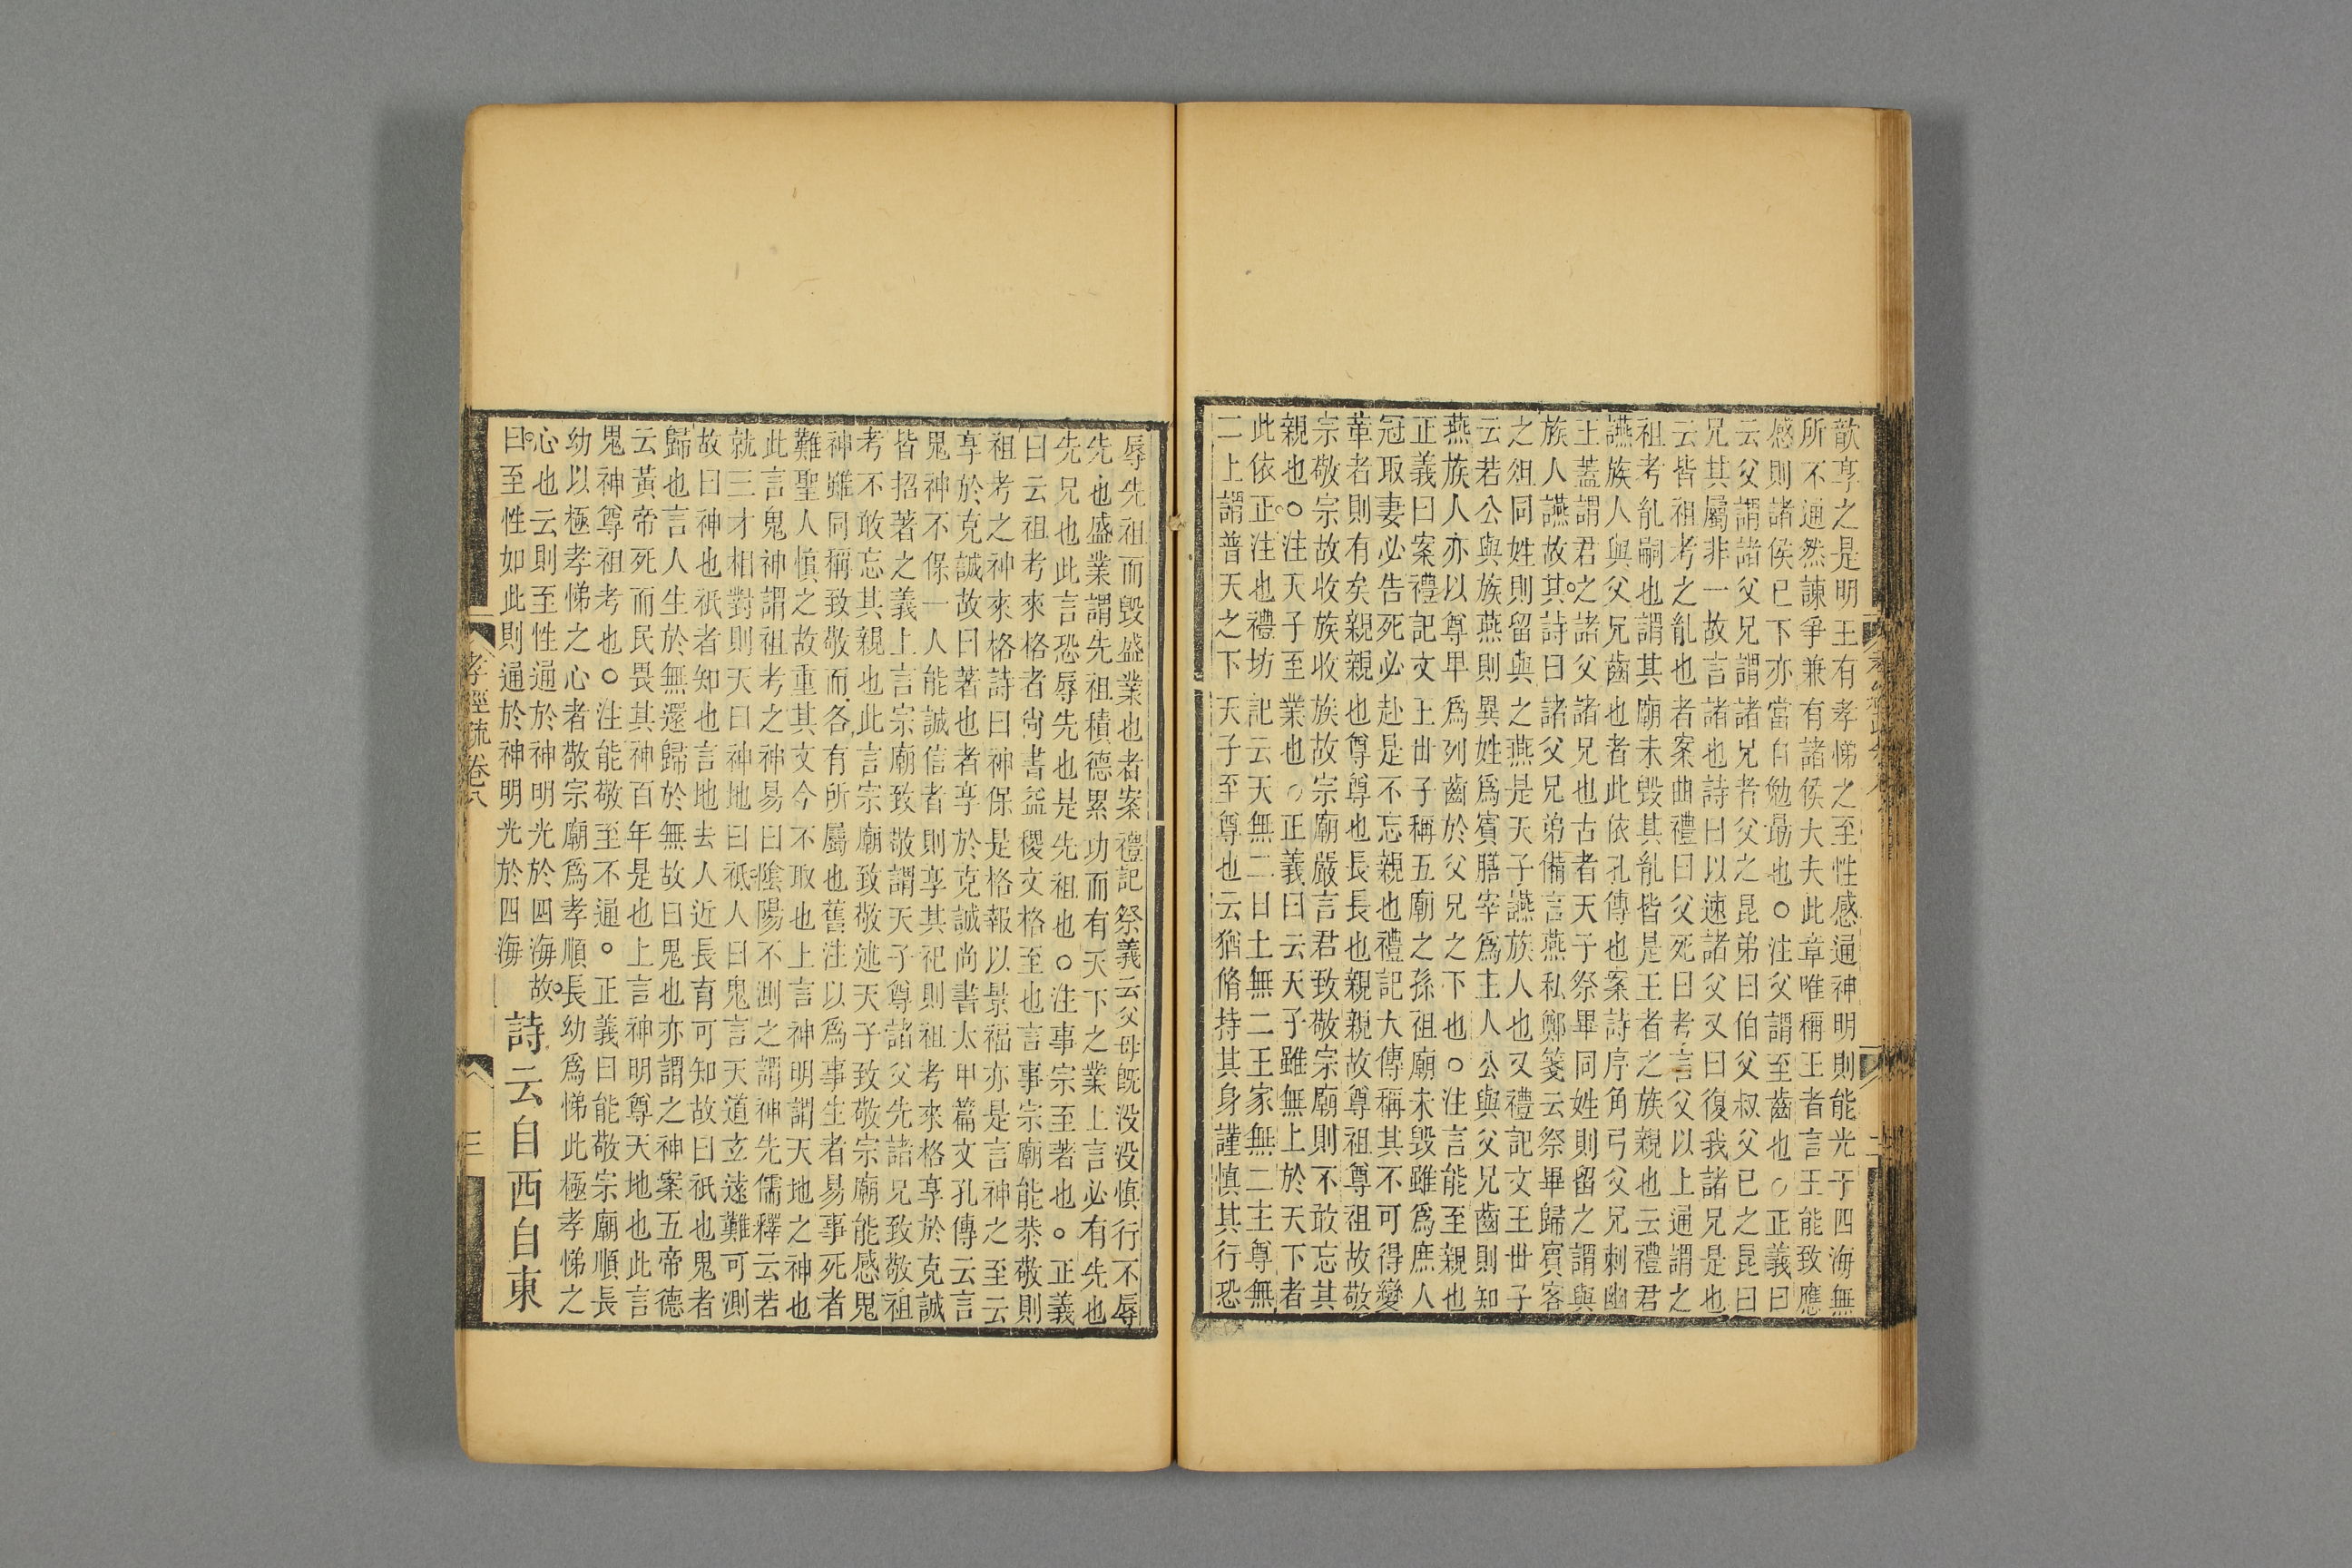 歆享之是明王有孝悌之至性感通神明則能光于四海無
所不通然諫爭兼有諸侯大夫此章唯稱王者言王能致應
感則諸侯已下亦當自勉勗也○注父謂至齒也○正義曰
云父謂諸父兄謂諸兄者父之昆弟曰伯父叔父已之昆曰
兄其屬非一故言諸也詩曰以速諸父又曰復我諸兄是也
云皆祖考之胤也者案曲禮曰父死曰考言父以上通謂之
祖考胤嗣也謂其廟未毀其胤皆是王者之族親也云禮君
讌族人與父兄齒也者此依孔傳也案詩序角弓父兄刺幽
王蓋謂君之諸父諸兄也古者天子祭畢同姓則留之謂與
族人讌故其詩曰諸父兄弟備言燕私鄭箋云祭畢歸賓客
之俎同姓則留與之燕是天子讌族人也又禮記文王世子
云若公與族燕則異姓爲賓膳宰爲主人公與父兄齒則知
燕族人亦以尊卑爲列齒於父兄之下也○注言能至親也
正義曰案禮記文王世子稱五廟之孫祖廟未毀雖爲庶人
冠取妻必告死必赴是不忘親也禮記大傳稱其不可得變
革者則有矣親親也尊尊也長長也親親故尊祖尊祖故敬
宗敬宗故收族收族故宗廟嚴言君致敬宗廟則不敢忘其
親也○注天子至業也○正義曰云天子雖無上於天下者
此依正注也禮坊記云天無二日土無二王家無二主尊無
二上謂普天之下天子至尊也云猶脩持其身謹慎其行恐
辱先祖而毀盛業也者案禮記祭義云父母旣没没慎行不辱
先也盛業謂先祖積德累功而有天下之業上言必有先也
先兄也此言恐辱先也是先祖也○注事宗至著也○正義
曰云祖考來格者尙書益稷文格至也言事宗廟能恭敬則
祖考之神來格詩曰神保是格報以景福亦是言神之至云
享於克誠故曰著也者享於克誠尙書太甲篇文孔傳云言
鬼神不保一人能誠信者則享其祀則祖考來格享於克誠
皆招著之義上言宗廟致敬謂天子尊諸父先諸兄致敬祖
考不敢忘其親也此言宗廟致敬述天子致敬宗廟能感鬼
神雖同稱致敬而各有所屬也舊注以爲事生者易事死者
難聖人慎之故重其文今不取也上言神明謂天地之神也
此言鬼神謂祖考之神易曰陰陽不測之謂神先儒釋云若
就三才相對則天曰神地曰祇人曰鬼言天道玄遠難可測
故曰神也祇者知也言地去人近長育可知故曰祇也鬼者
歸也言人生於無還歸於無故曰鬼也亦謂之神案五帝德
云黃帝死而民畏其神百年是也上言神明尊天地也此言
鬼神尊祖考也○注能敬至不通○正義曰能敬宗廟順長
幼以極孝悌之心者敬宗廟爲孝順長幼爲悌此極孝悌之
心也云則至性通於神明光於四海故
曰至性如此則通於神明光於四海 詩云自西自東
孝經疏卷八
三